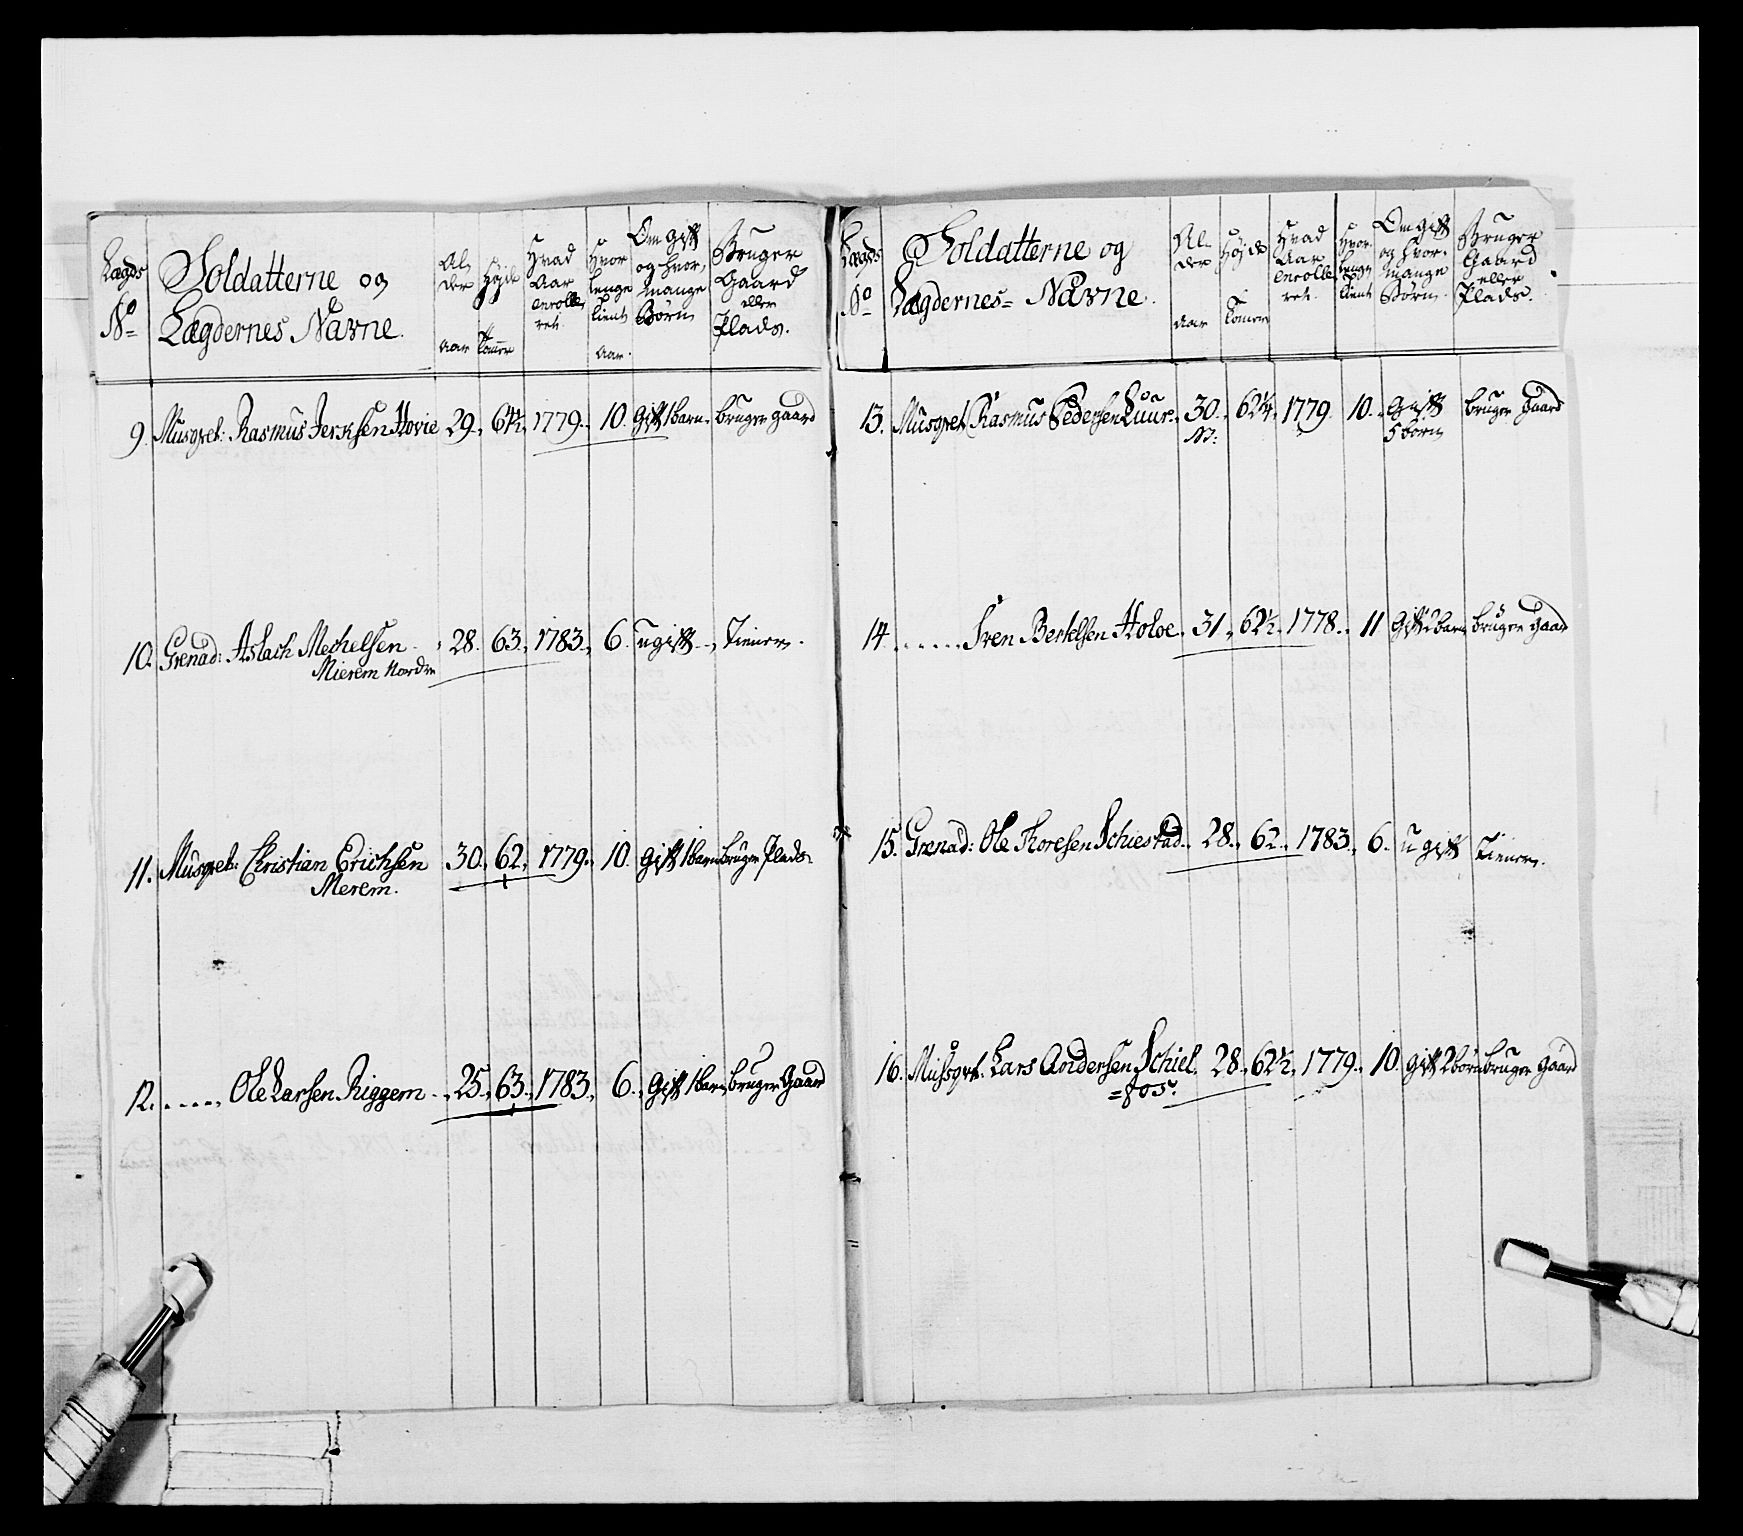 Lægds No
Soldatterne og Lægdernes Navne.
Alder aar
Høyde Tommer
Hvad Aar enrolleret
Hvor lenge tient aar.
Om Gift og hvor mange Børn
Bruger Gaard eller Plads.
9. Musqvet: Rasmus Jerksen Hovie 29. 64½ 1779. 10. Gift 1 barn. bruger gaard
10. Grenad: Aslach Mechelsen 28. 63. 1783. 6. ugift Tiener.
Mierem Nordre
11. Musqvet: Christian Erichsen 30. 62. 1779. 10. Gift 1 barn bruger Plads.
Merem.
12. . . . . . Ole Larsen Riggem 25. 63. 1783. 6. Gift 1 barn bruger Gaard
Lægds No
Soldatterne og Lægdernes= Navne.
Alder aar
Høyde Tommer
Hvad Aar enrolleret.
Hvor lenge tient
Om Gift og hvor mange Børn.
Bruger Gaard eller Plads.
13. Musqvet: Rasmus Pedersen Luur. 30. 62¼. 1779. 10. Gift bruger Gaard
5 børn
14. . . . . . Sven Bertelsen Holoe. 31. 62½. 1778. 11 Gift 2 barn bruger Gaard
15. Grenad: Ole Thoresen Schiestad. 28. 62. 1783. 6. ugift Tiener.
16. Musqvet. Lars Andersen Schiel 28. 62½. 1779. 10. Gift 2 børn bruger Gaard
=fos.